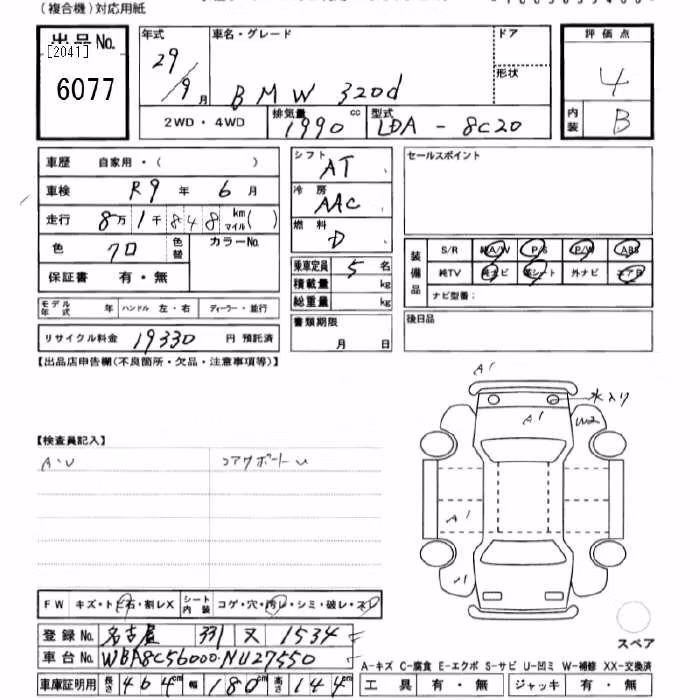 (複合機)対応用紙
出品No. 年式 車名・グレード ドア 評価点
[2041] 29 形状 4
6077 9月 BMW 320d
2WD・4WD 排気量 1990 cc 型式 LDA-8C20 内装 B
車歴 自家用・( ) シフト AT セールスポイント
車検 R9年 6月 冷房 AAC
走行 8万1千848 km マイル( ) 燃料 D
色 クロ 色替 カラーNo. 装備品 S/R 純A/W P/S P/W ABS
保証書 有・無 乗車定員 5名 純TV 純ナビ 革シート 外ナビ エアB
積載量 kg ナビ型番:
モデル年式 年 ハンドル 左・右 ディーラー・並行 総重量 kg
リサイクル料金 19330 円 預託済 書類期限 月 日 後日品
【出品店申告欄(不良箇所・欠品・注意事項等)】
A1
水入り
A1 W2
【検査員記入】
A・U コアサポートU
A1
A1
FW キズ・ト石・割レX シート内装 コゲ・穴・汚レ・シミ・破レ・スレ
登録No. 名古屋 331 ヌ 1534
スペア
車台No. WBA8C56000NU27550
A-キズ C-腐食 E-エクボ S-サビ U-凹ミ W-補修 XX-交換済
車庫証明用 長さ 464cm 幅 180cm 高さ 144cm 工具 有・無 ジャッキ 有・無